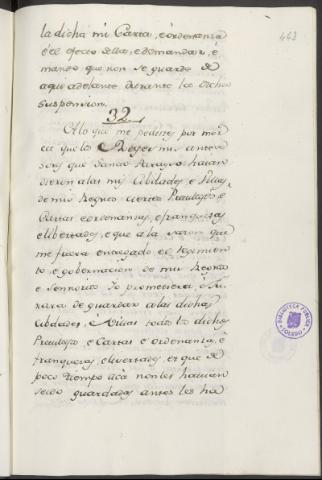 443
la dicha mi Carta, é ordenanza
é el efecto della, é demandar, é
mando que non se guarde de
aqui adelante durante la dicha
suspension.
32
A lo que me pedistes por mer
ced que los Reyes mis antece
sores que Santo Parayso hayan
dieron a las mis Cibdades, e Villas,
de mis Regnos ciertos Privilegios, e
Cartas e ordenanzas, e franquezas
e libertades, e que a la sazon que
me fuera entregado el regimien
to e gobernacion de mis Regnos
e Sennorios Yo prometiera, é Ju
rara de guardar a las dichas
Cibdades, é Villas todos los dichos
Privilegios, e Cartas e Ordenanzas, é
franquezas e livertades, et que de
poco tiempo acá non les havian
seido guardados antes les ha
BIBLIOTECA PUBLICA
TOLEDO